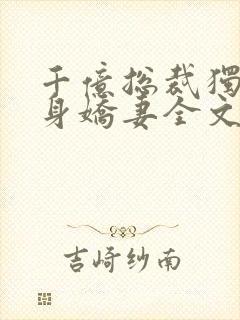 千億總裁獨
身嬌妻全文
吉崎纱南